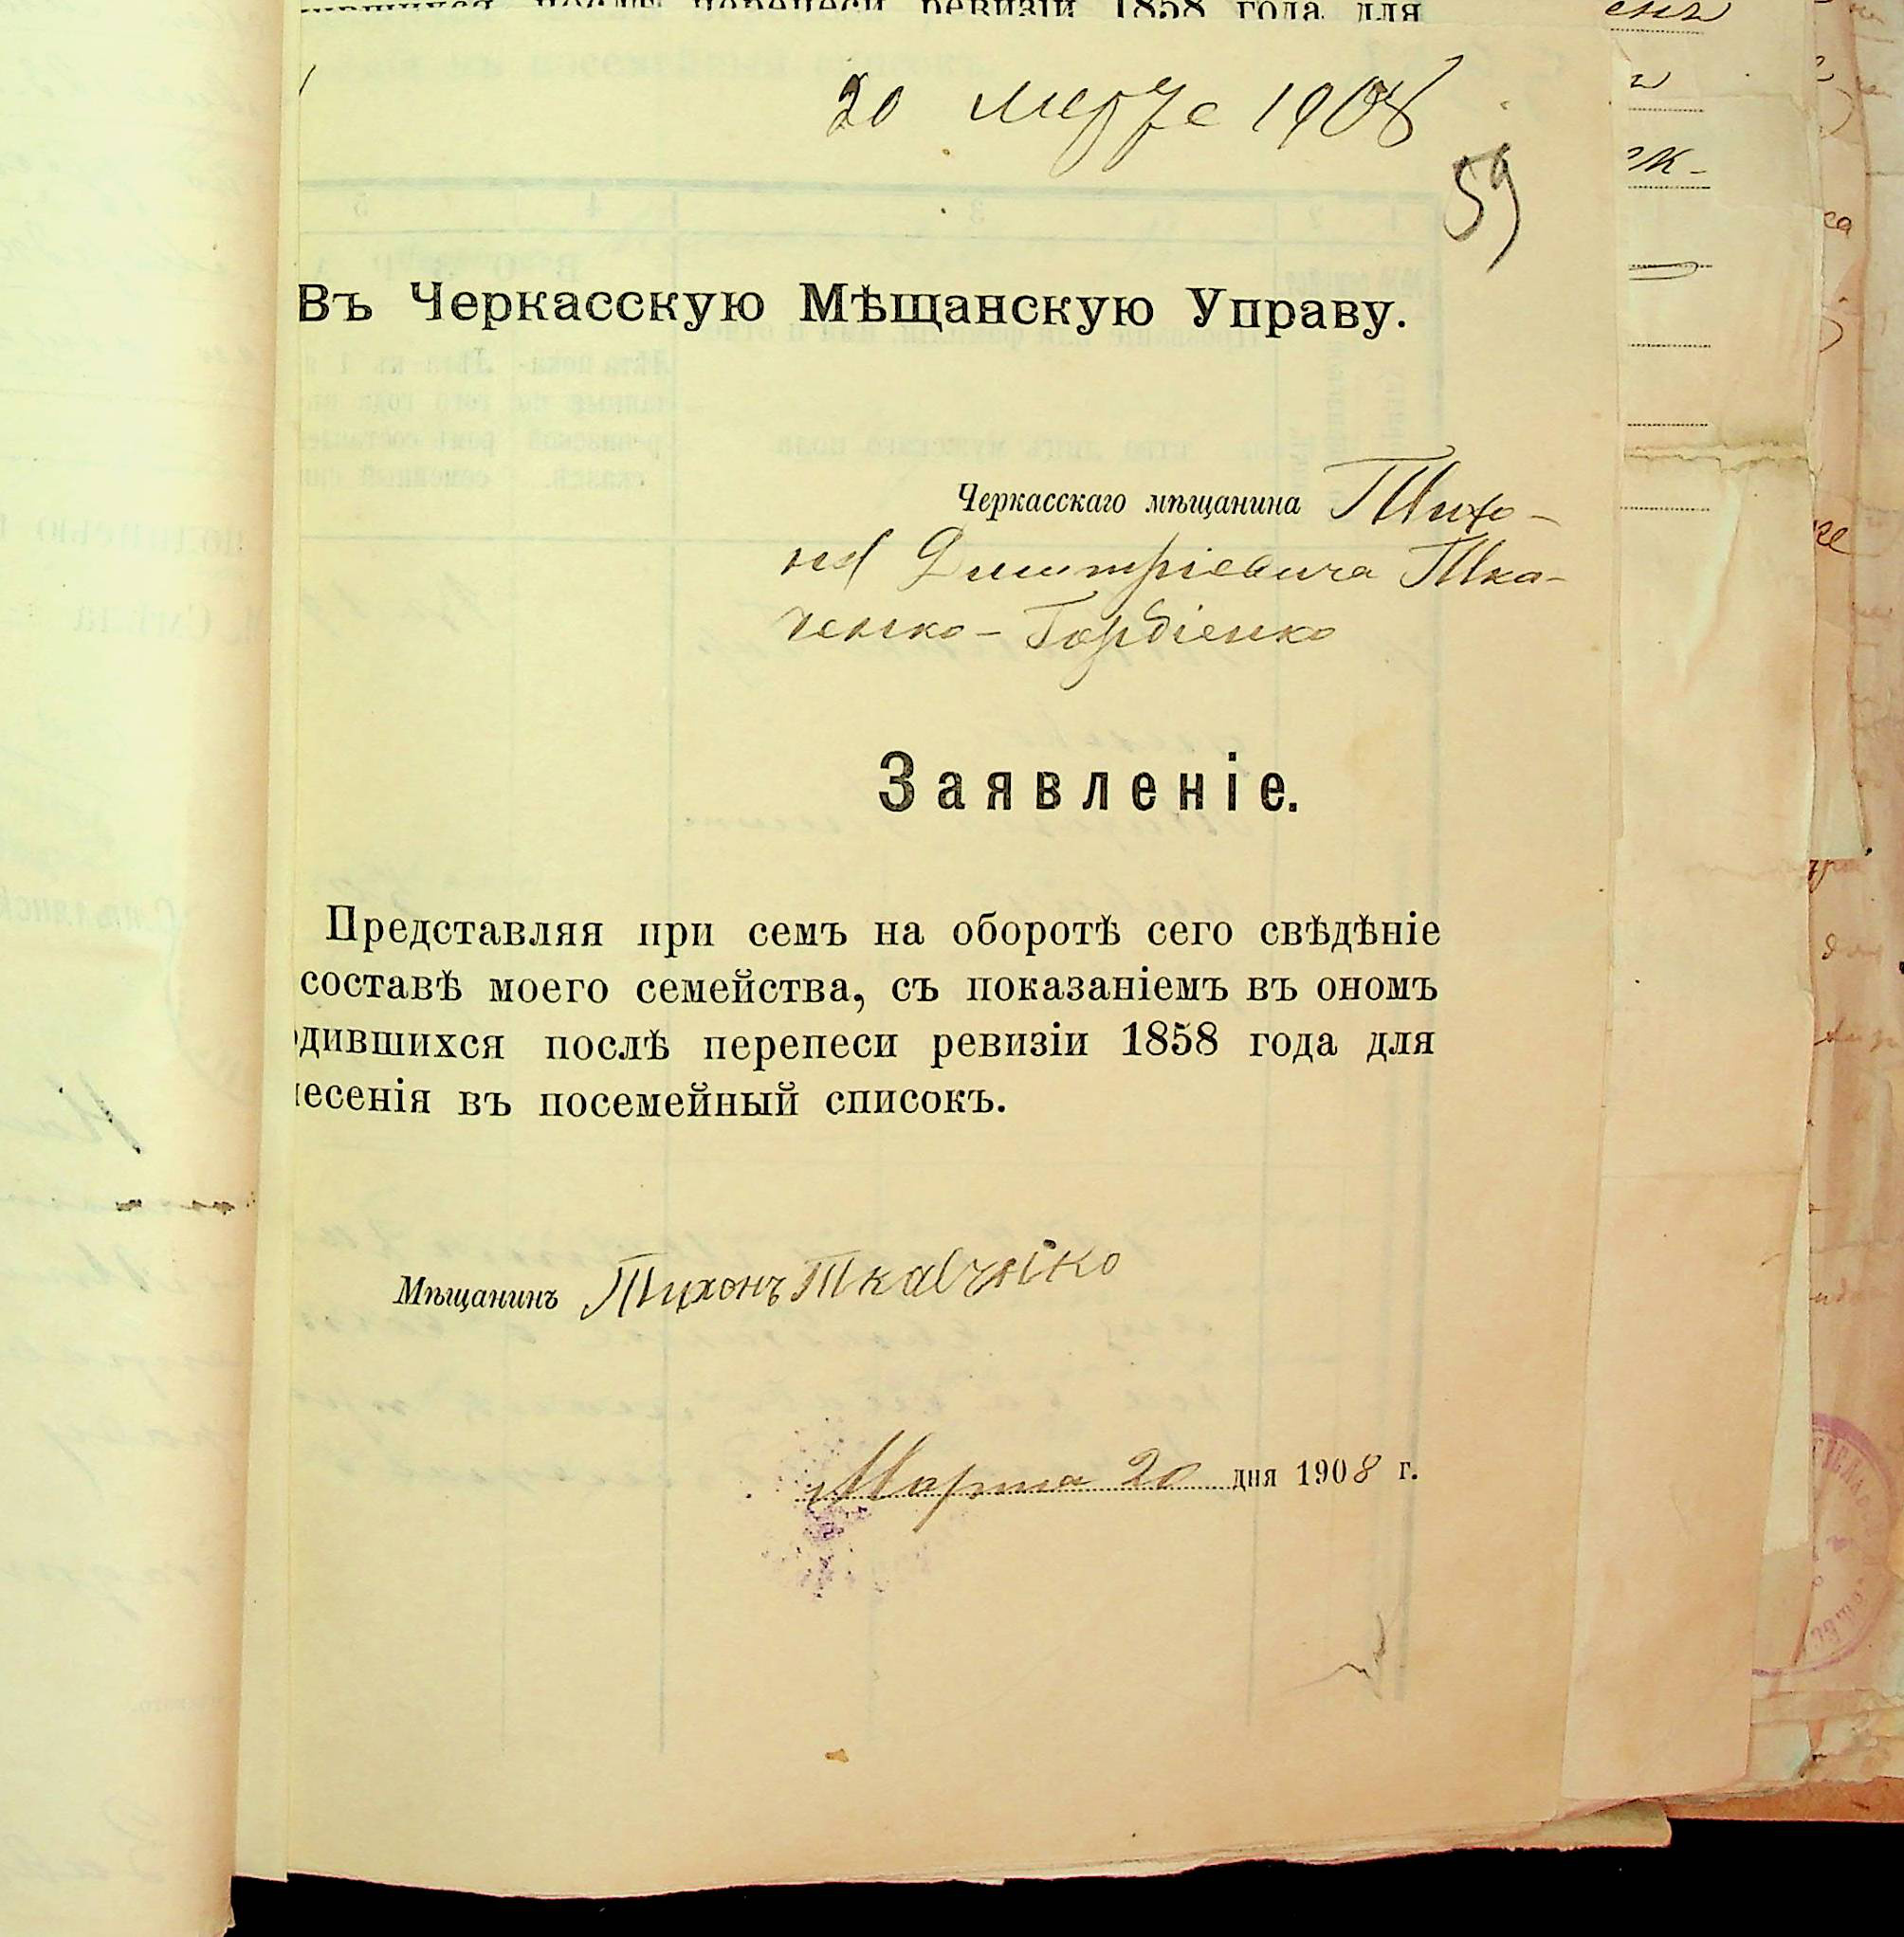 ревизіи 1858 года для
20 марта 1908
59
Въ Черкасскую Мѣщанскую Управу.
Черкасскаго мѣщанина Тихо-
на Димитріевича Тка-
ченко-Гордіенко
Заявленіе.
Представляя при семъ на оборотѣ сего свѣдѣніе
составѣ моего семейства, съ показаніемъ въ ономъ
одившихся послѣ перепеси ревизіи 1858 года для
несенія въ посемейный списокъ.
Мѣщанинъ Тихонъ Ткавчнко
Марта 20 дня 1908 г.